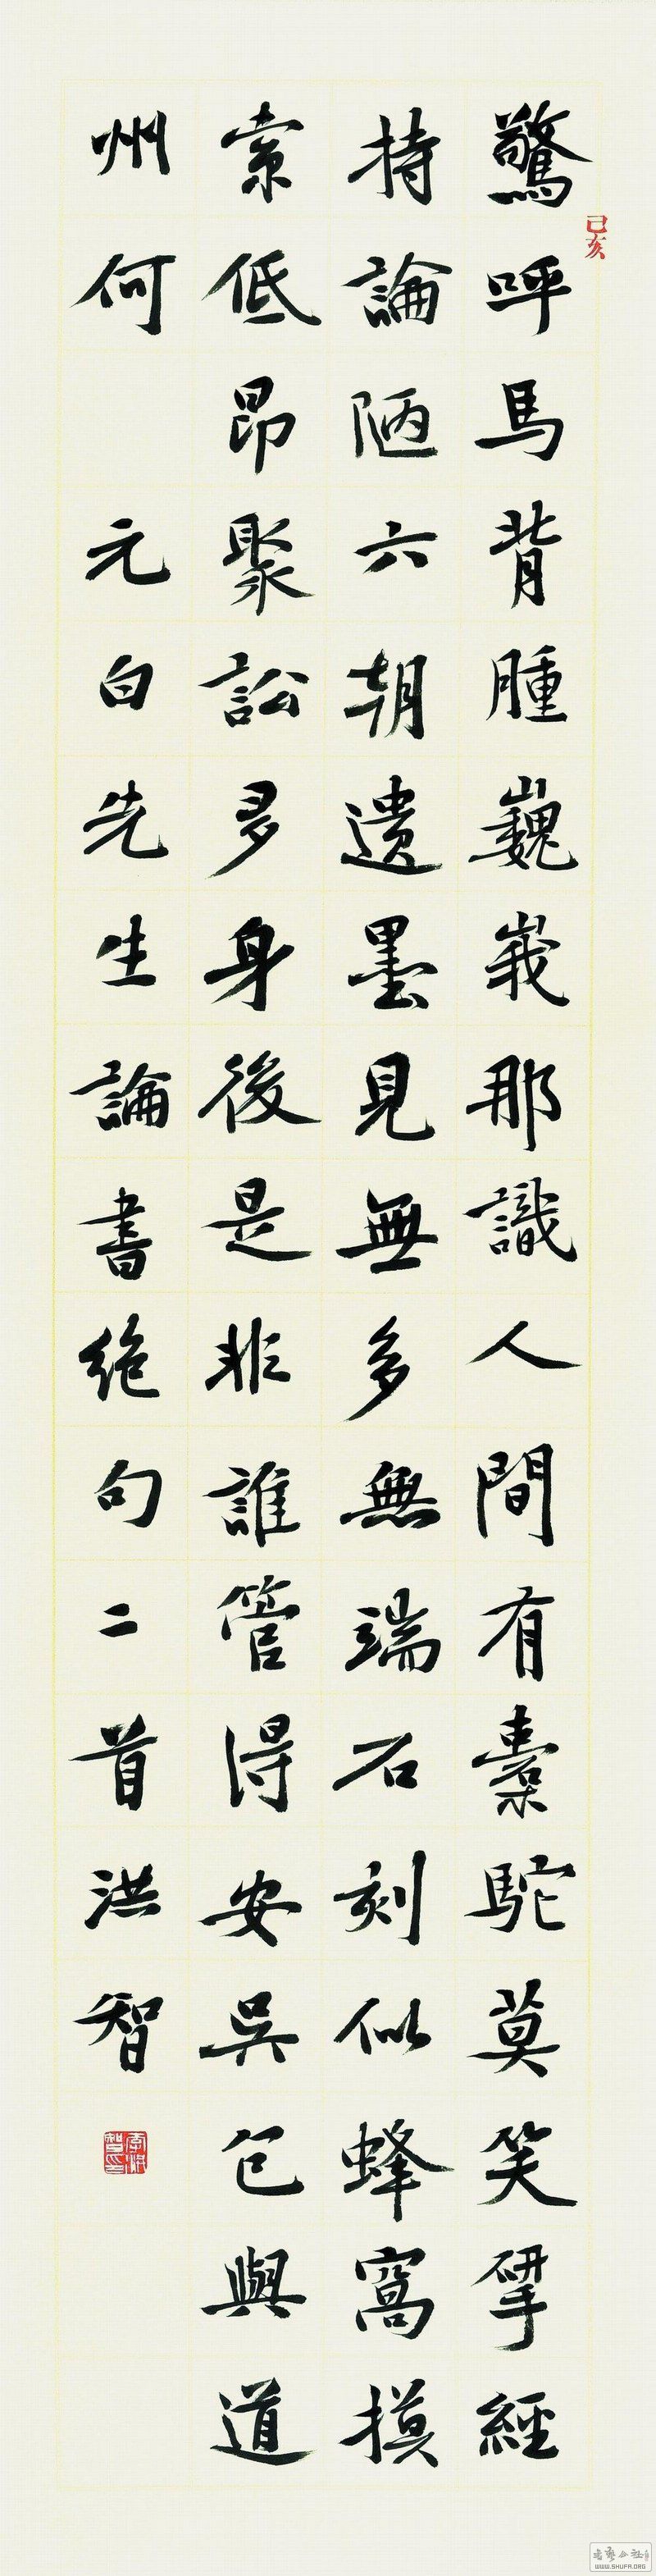 驚呼馬背腫巍峩那識人間有橐駝莫笑揅經
持論陋六朝遺墨見無多無端石刻似蜂窩摸
索低昂聚訟多身後是非誰管得安吳包與道
州何 元白先生論書絕句二首洪智
己亥
书艺公社
WWW.SHUFA.ORG